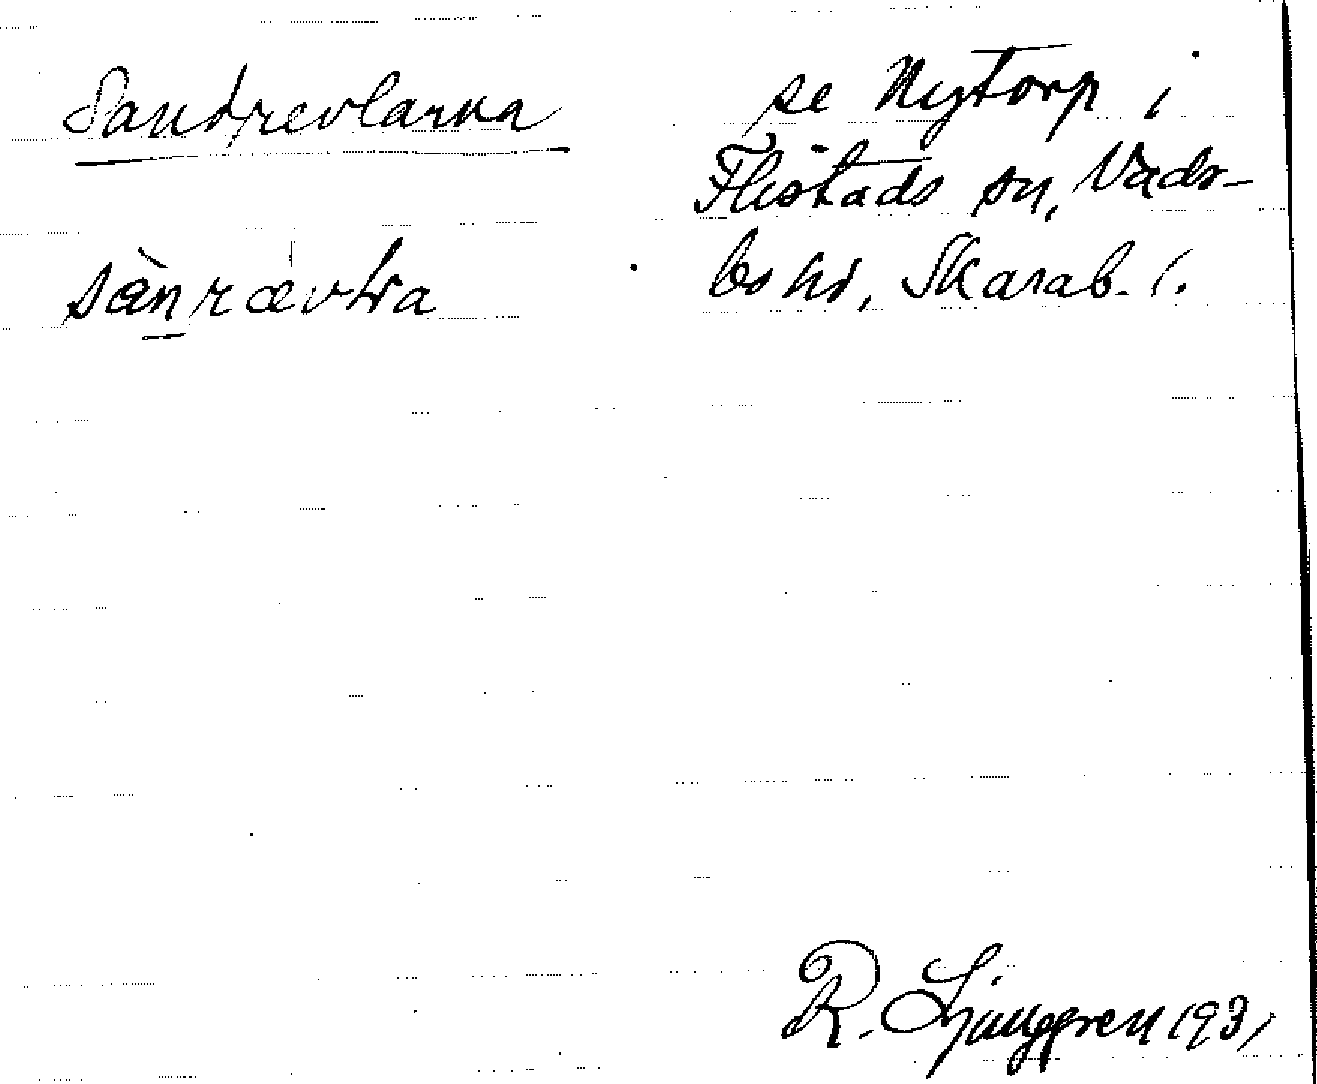 Sandrevlarna
sànrævlra
se Nytorp i
Flistads sn, Vads-
bo hd, Skarab. l.
R. Ljunggren 1931